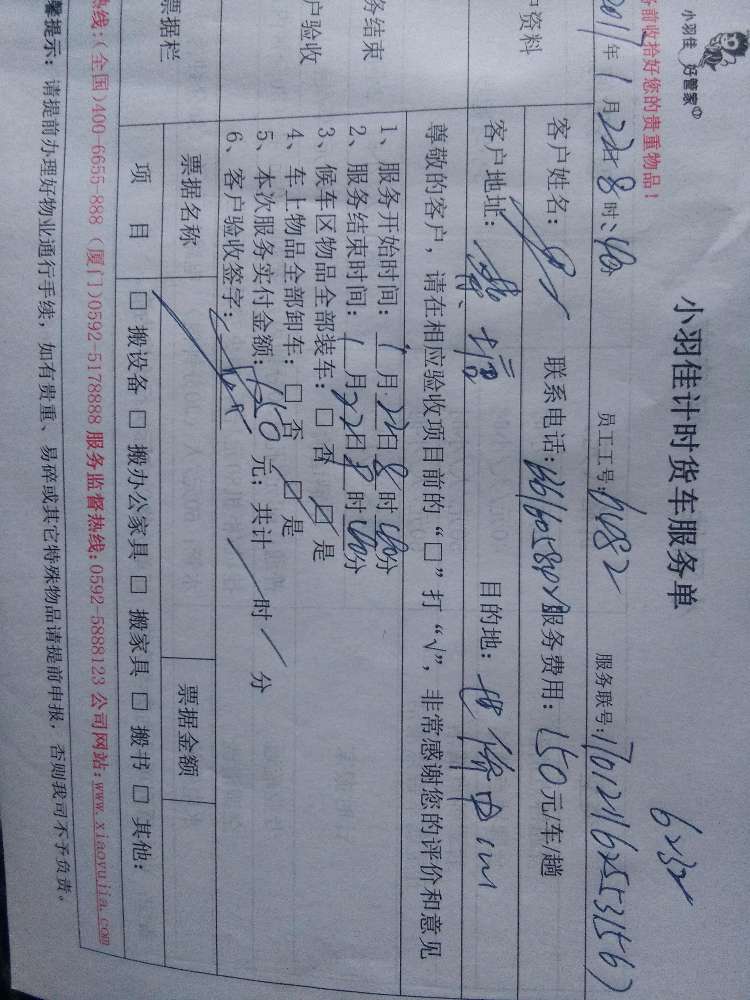 小羽佳 好管家
小羽佳计时货车服务单
6232
务前收拾好您的贵重物品！
2011年1月22日8时:40 员工工号: 服务联号:
户资料
客户姓名: 联系电话: 服务费用: 150元/车/趟
客户地址: 目的地:
尊敬的客户，请在相应验收项目前的“□”打“√”，非常感谢您的评价和意见
务结束
户验收
1、服务开始时间: 1月22日8时40分
2、服务结束时间: 1月22日9时40分
3、候车区物品全部装车: □ 否 □ 是
4、车上物品全部卸车: □ 否 □ 是
5、本次服务实付金额: 150元; 共计 / 时 / 分
6、客户验收签字:
票据栏
票据名称 票据金额
项 目 □ 搬设备 □ 搬办公家具 □ 搬家具 □ 搬书 □ 其他:
热线:(全国)400-6655-888 (厦门)0592-5178888 服务监督热线:0592-5888123 公司网站:www.xiaoyujia.com
馨提示: 请提前办理好物业通行手续，如有贵重、易碎或其它特殊物品请提前申报，否则我司不予负责。